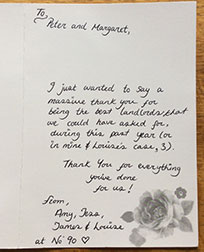 To,
Peter and Margaret,
I just wanted to say a
massive thank you for
being the best landlords that
we could have asked for,
during this past year (or
in mine & Louise's case, 3).
Thank You for everything
you've done
for us!
From,
Amy, Tess,
James & Louise
at No 90 ♡